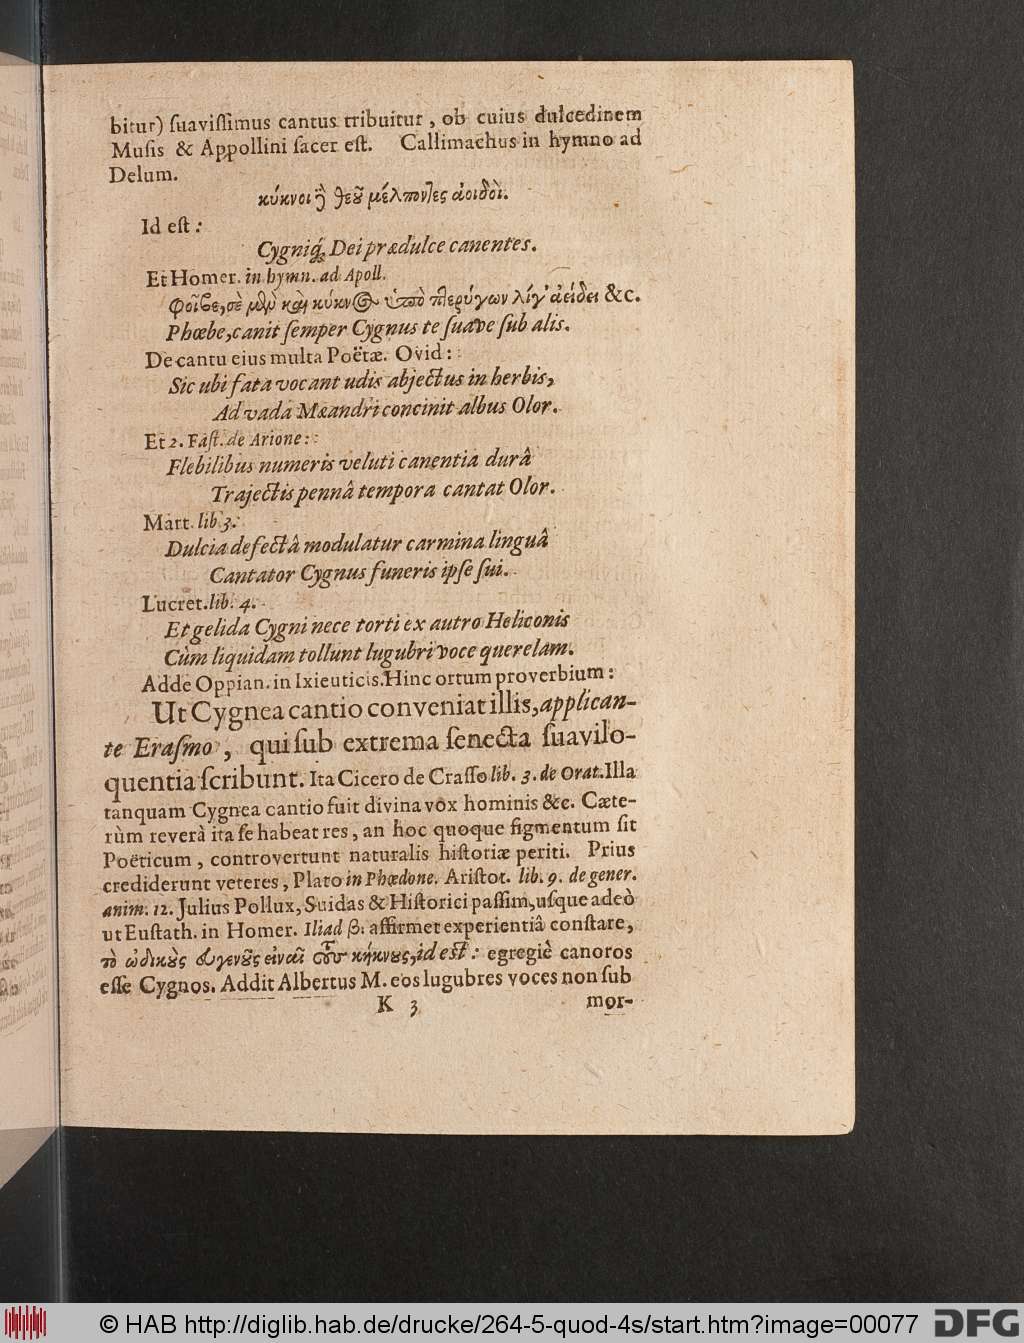 bitur) ſuaviſſimus cantus tribuitur, ob cuius dulcedinem
Muſis & Appollini ſacer eſt. Callimachus in hymno ad
Delum.
κύκνοι ἢ θεοῦ μέλποντες ἀοιδοὶ.
Id eſt:
Cygniq́; Dei prædulce canentes.
Et Homer. in hymn. ad Apoll.
Φοῖβε, σὲ μὲν καὶ κύκνος ὑπὸ πτερύγων λίγ' ἀείδει &c.
Phœbe, canit ſemper Cygnus te ſuave ſub alis.
De cantu eius multa Poëtæ. Ovid:
Sic ubi fata vocant udis abjectus in herbis,
Ad vada Mæandri concinit albus Olor.
Et 2. Faſt. de Arione:
Flebilibus numeris veluti canentia durâ
Trajectis pennâ tempora cantat Olor.
Mart. lib 3.
Dulcia defectâ modulatur carmina linguâ
Cantator Cygnus funeris ipſe ſui.
Lucret. lib. 4.
Et gelida Cygni nece torti ex autro Heliconis
Cùm liquidam tollunt lugubri voce querelam.
Adde Oppian. in Ixieuticis. Hinc ortum proverbium:
Ut Cygnea cantio conveniat illis, applican-
te Eraſmo, qui ſub extrema ſenecta ſuavilo-
quentia ſcribunt. Ita Cicero de Craſſo lib. 3. de Orat. Illa
tanquam Cygnea cantio fuit divina vox hominis &c. Cæte-
rùm reverà ita ſe habeat res, an hoc quoque figmentum ſit
Poëticum, controvertunt naturalis hiſtoriæ periti. Prius
crediderunt veteres, Plato in Phœdone. Ariſtot. lib. 9. de gener.
anim. 12. Julius Pollux, Suidas & Hiſtorici paſſim, uſque adeò
ut Euſtath. in Homer. Iliad β. affirmet experientiâ conſtare,
τὸ ᾠδικοὺς εὐγενοῦς εἶναι τοὺς κήκνους, id eſt: egregiè canoros
eſſe Cygnos. Addit Albertus M. eos lugubres voces non ſub
K 3 mor-
© HAB http://diglib.hab.de/drucke/264-5-quod-4s/start.htm?image=00077
DFG